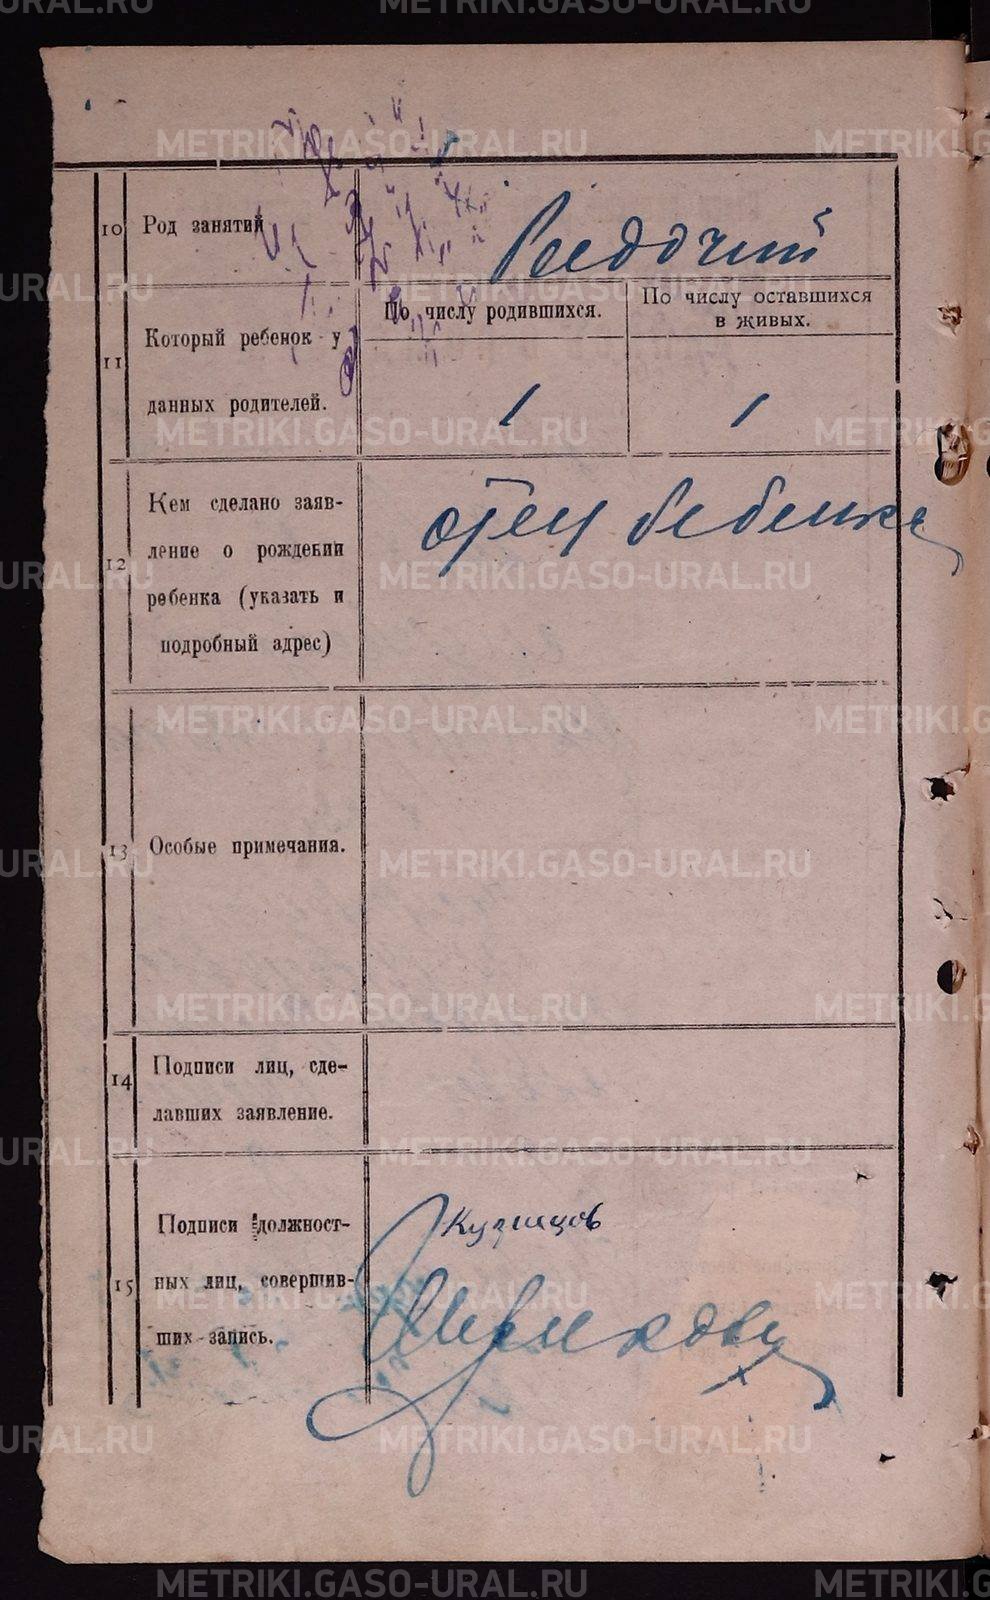 10
Род занятий
Рабочий
11
Который ребенок у
данных родителей.
По числу родившихся.
По числу оставшихся
в живых.
1
1
12
Кем сделано заяв-
ление о рождении
ребенка (указать и
подробный адрес)
отец ребенка
13
Особые примечания.
14
Подписи лиц, сде-
лавших заявление.
15
Подписи должност-
ных лиц, совершив-
ших запись.
Кузнецов
METRIKI.GASO-URAL.RU